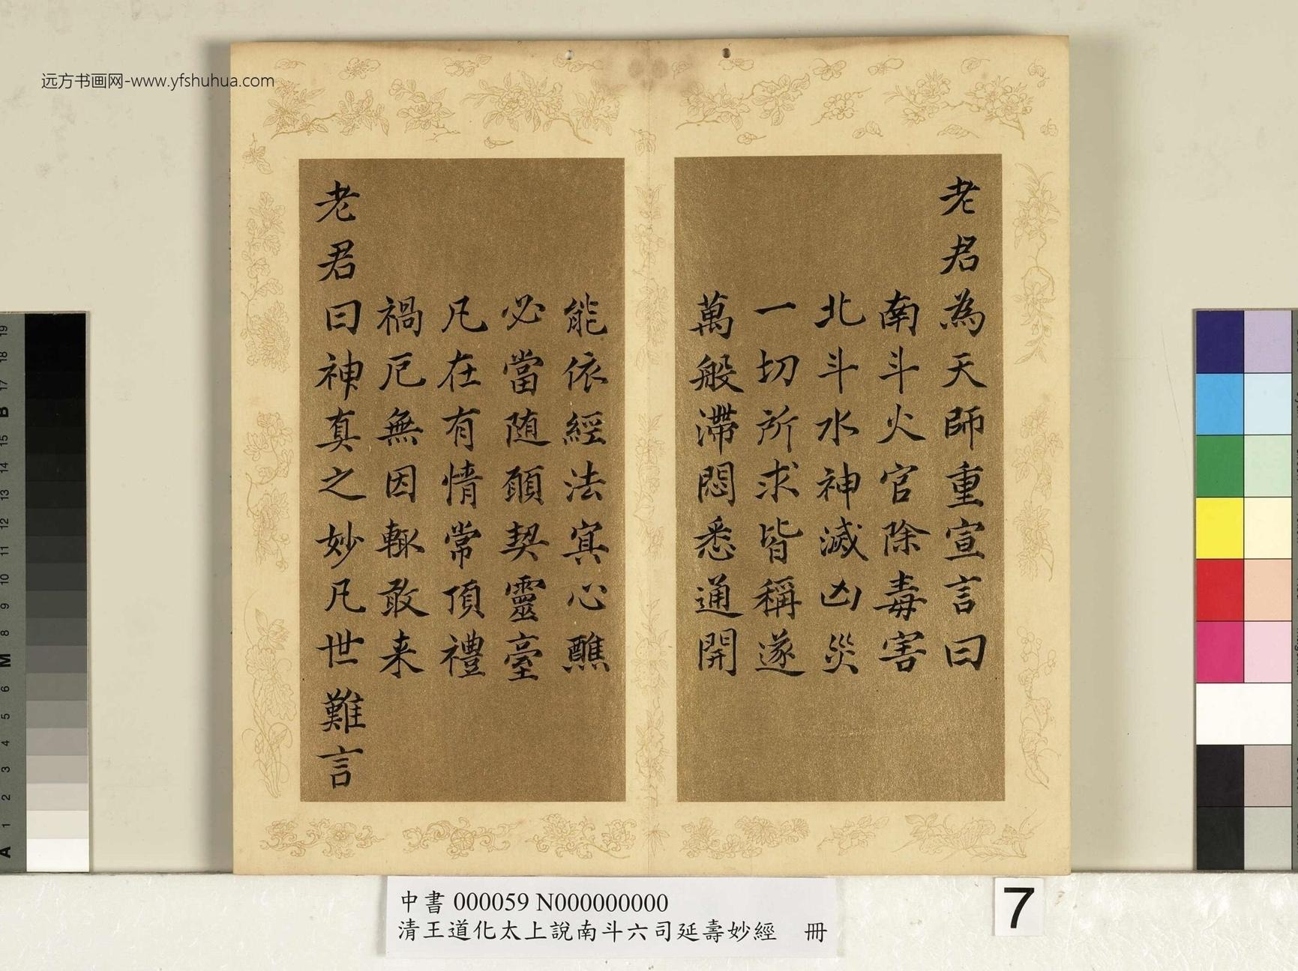 远方书画网-www.yfshuhua.com
老君為天師重宣言曰
南斗火官除毒害
北斗水神滅凶災
一切所求皆稱遂
萬般滯悶悉通開
能依經法寘心醮
必當随願契靈臺
凡在有情常頂禮
禍厄無因輙敢来
老君曰神真之妙凡世難言
中書 000059 N000000000
清王道化太上說南斗六司延壽妙經 冊
7
19
18
17
B
16
15
14
13
12
11
10
9
8
7
M
6
5
4
3
2
1
A